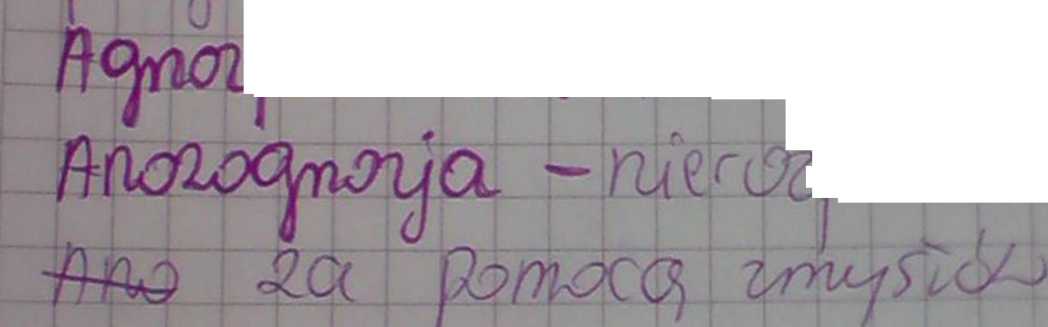 Agnoz
Anozognozja - nieroz
Ano za pomocą zmysłów